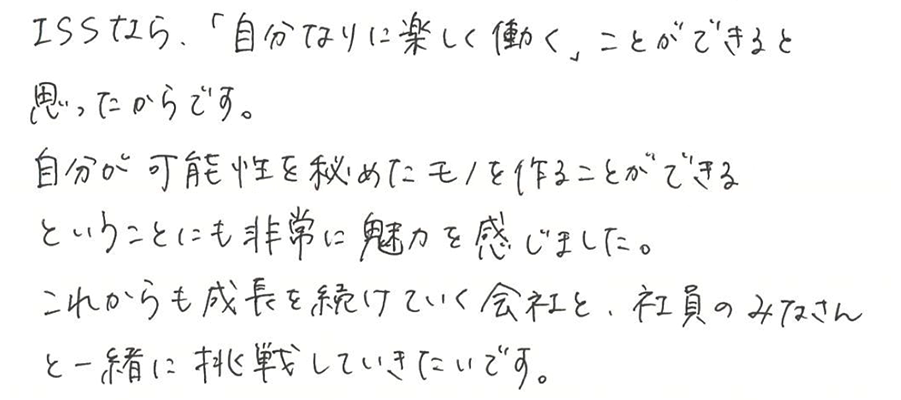 ISSなら、「自分なりに楽しく働く」ことができると
思ったからです。
自分が可能性を秘めたモノを作ることができる
ということにも非常に魅力を感じました。
これからも成長を続けていく会社と、社員のみなさん
と一緒に挑戦していきたいです。